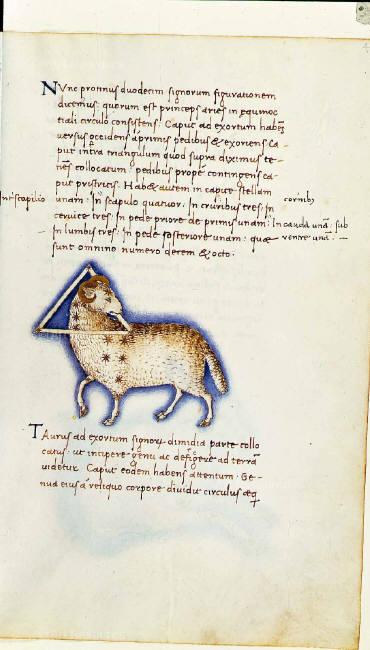 Nunc protinus duodecim signorum figurationem
dicemus: quorum est princeps aries in equinoc
tiali circulo consistens. Caput ad exortum habẽs
versus occidens a primis pedibus & exoriens ca-
put infra triangulum quod supra diximus te-
nẽs collocatum: pedibus prope contingens ca-
put pristricis. Habet autem in capite stellam
unam: In scapulo quatuor: In cruribus tres: In
cervice tres: In pede priore de primis unam: In cauda unã: sub
In lumbis tres: In pede posteriore unam: quae ventre unã. -
sunt omnino numero decem & octo.
Inter scapilio
cornibꝫ
Taurus ad exortum signorũ dimidia parte collo
catus: ut incipere genu ac defigere ad terrã
videtur. Caput eodem habens attentum. Ge-
nua eius a reliquo corpore dividit circulus aeq̃